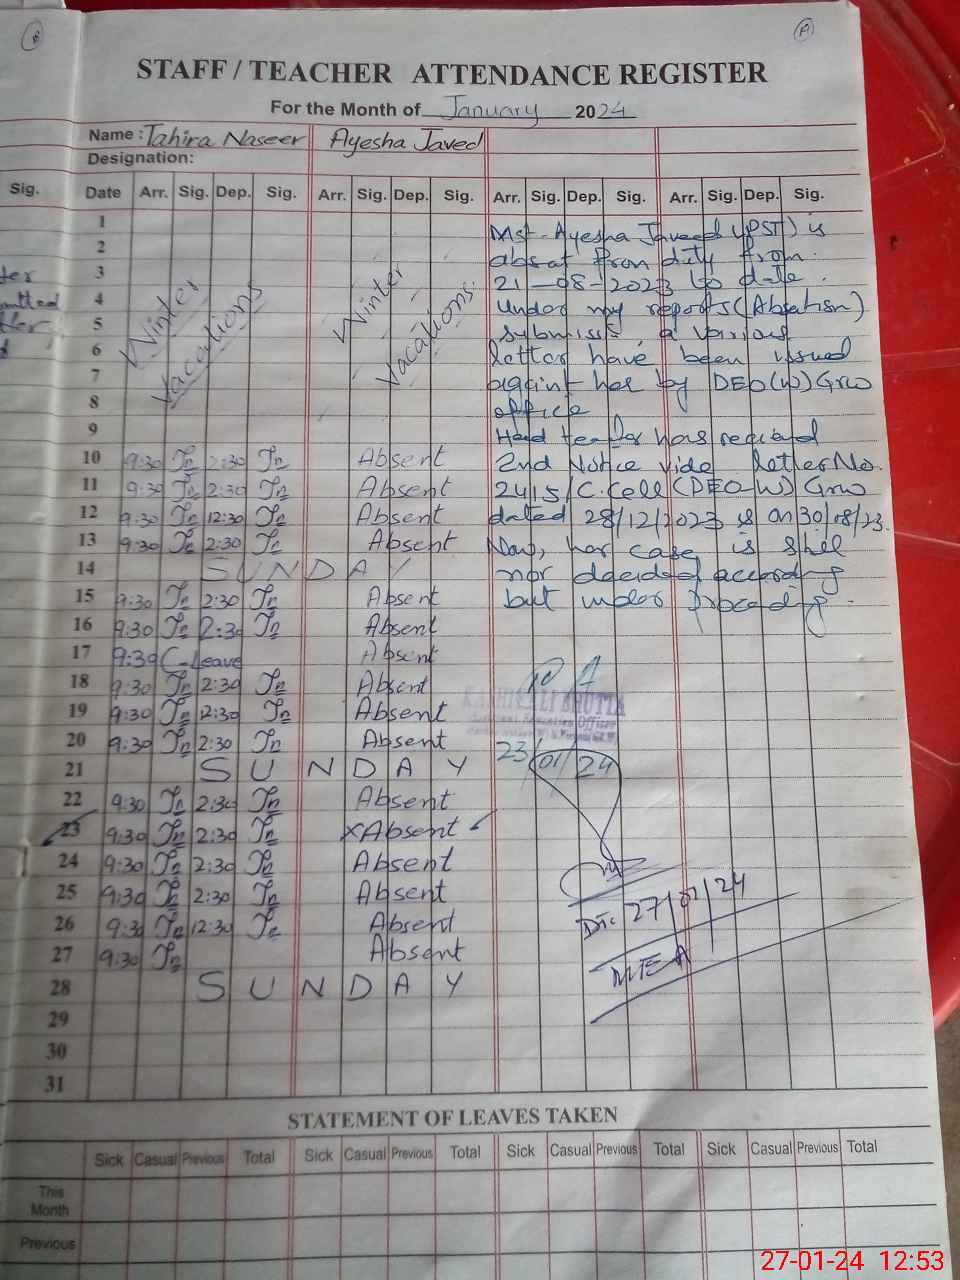 STAFF / TEACHER ATTENDANCE REGISTER
For the Month of January 2024
Name : Tahira Naseer Ayesha Javed
Designation:
Sig. Date Arr. Sig. Dep. Sig. Arr. Sig. Dep. Sig. Arr. Sig. Dep. Sig. Arr. Sig. Dep. Sig.
Winter Vacations
Winter Vacations.
1
2
3
4
5
6
7
8
9
10 9:30 Tn 2:30 Tn Absent
11 9:30 Tn 2:30 Tn Absent
12 9:30 Tn 12:30 Tn Absent
13 9:30 Tn 2:30 Tn Absent
14 SUNDAY
15 9:30 Tn 2:30 Tn Absent
16 9:30 Tn 2:30 Tn Absent
17 9:30 C-Leave Absent
18 9:30 Tn 2:30 Tn Absent
19 9:30 Tn 12:30 Tn Absent
20 9:30 Tn 2:30 Tn Absent
21 SUNDAY
22 9:30 Tn 2:30 Tn Absent
23 9:30 Tn 2:30 Tn xAbsent
24 9:30 Tn 2:30 Tn Absent
25 9:30 Tn 2:30 Tn Absent
26 9:30 Tn 12:30 Tn Absent
27 9:30 Tn Absent
28 SUNDAY
29
30
31
Mst. Ayesha Javeed (PST) is
absat from duty from.
21-08-2023 to date.
Under my reports (Absatism)
a various
letter have been issued
againt her by DEO(W) Grw
office
Head teacher has recieved
2nd Notice vide letter No.
2415/C.Cell (DEO-W) Grw
dated 28/12/2023 is on 30/08/23.
Now, her case is still
nor decided according
but under proceeding.
A
23/01/24
Dt: 27/01/24
MEA
STATEMENT OF LEAVES TAKEN
Sick Casual Previous Total Sick Casual Previous Total Sick Casual Previous Total Sick Casual Previous Total
This
Month
Previous
27-01-24 12:53